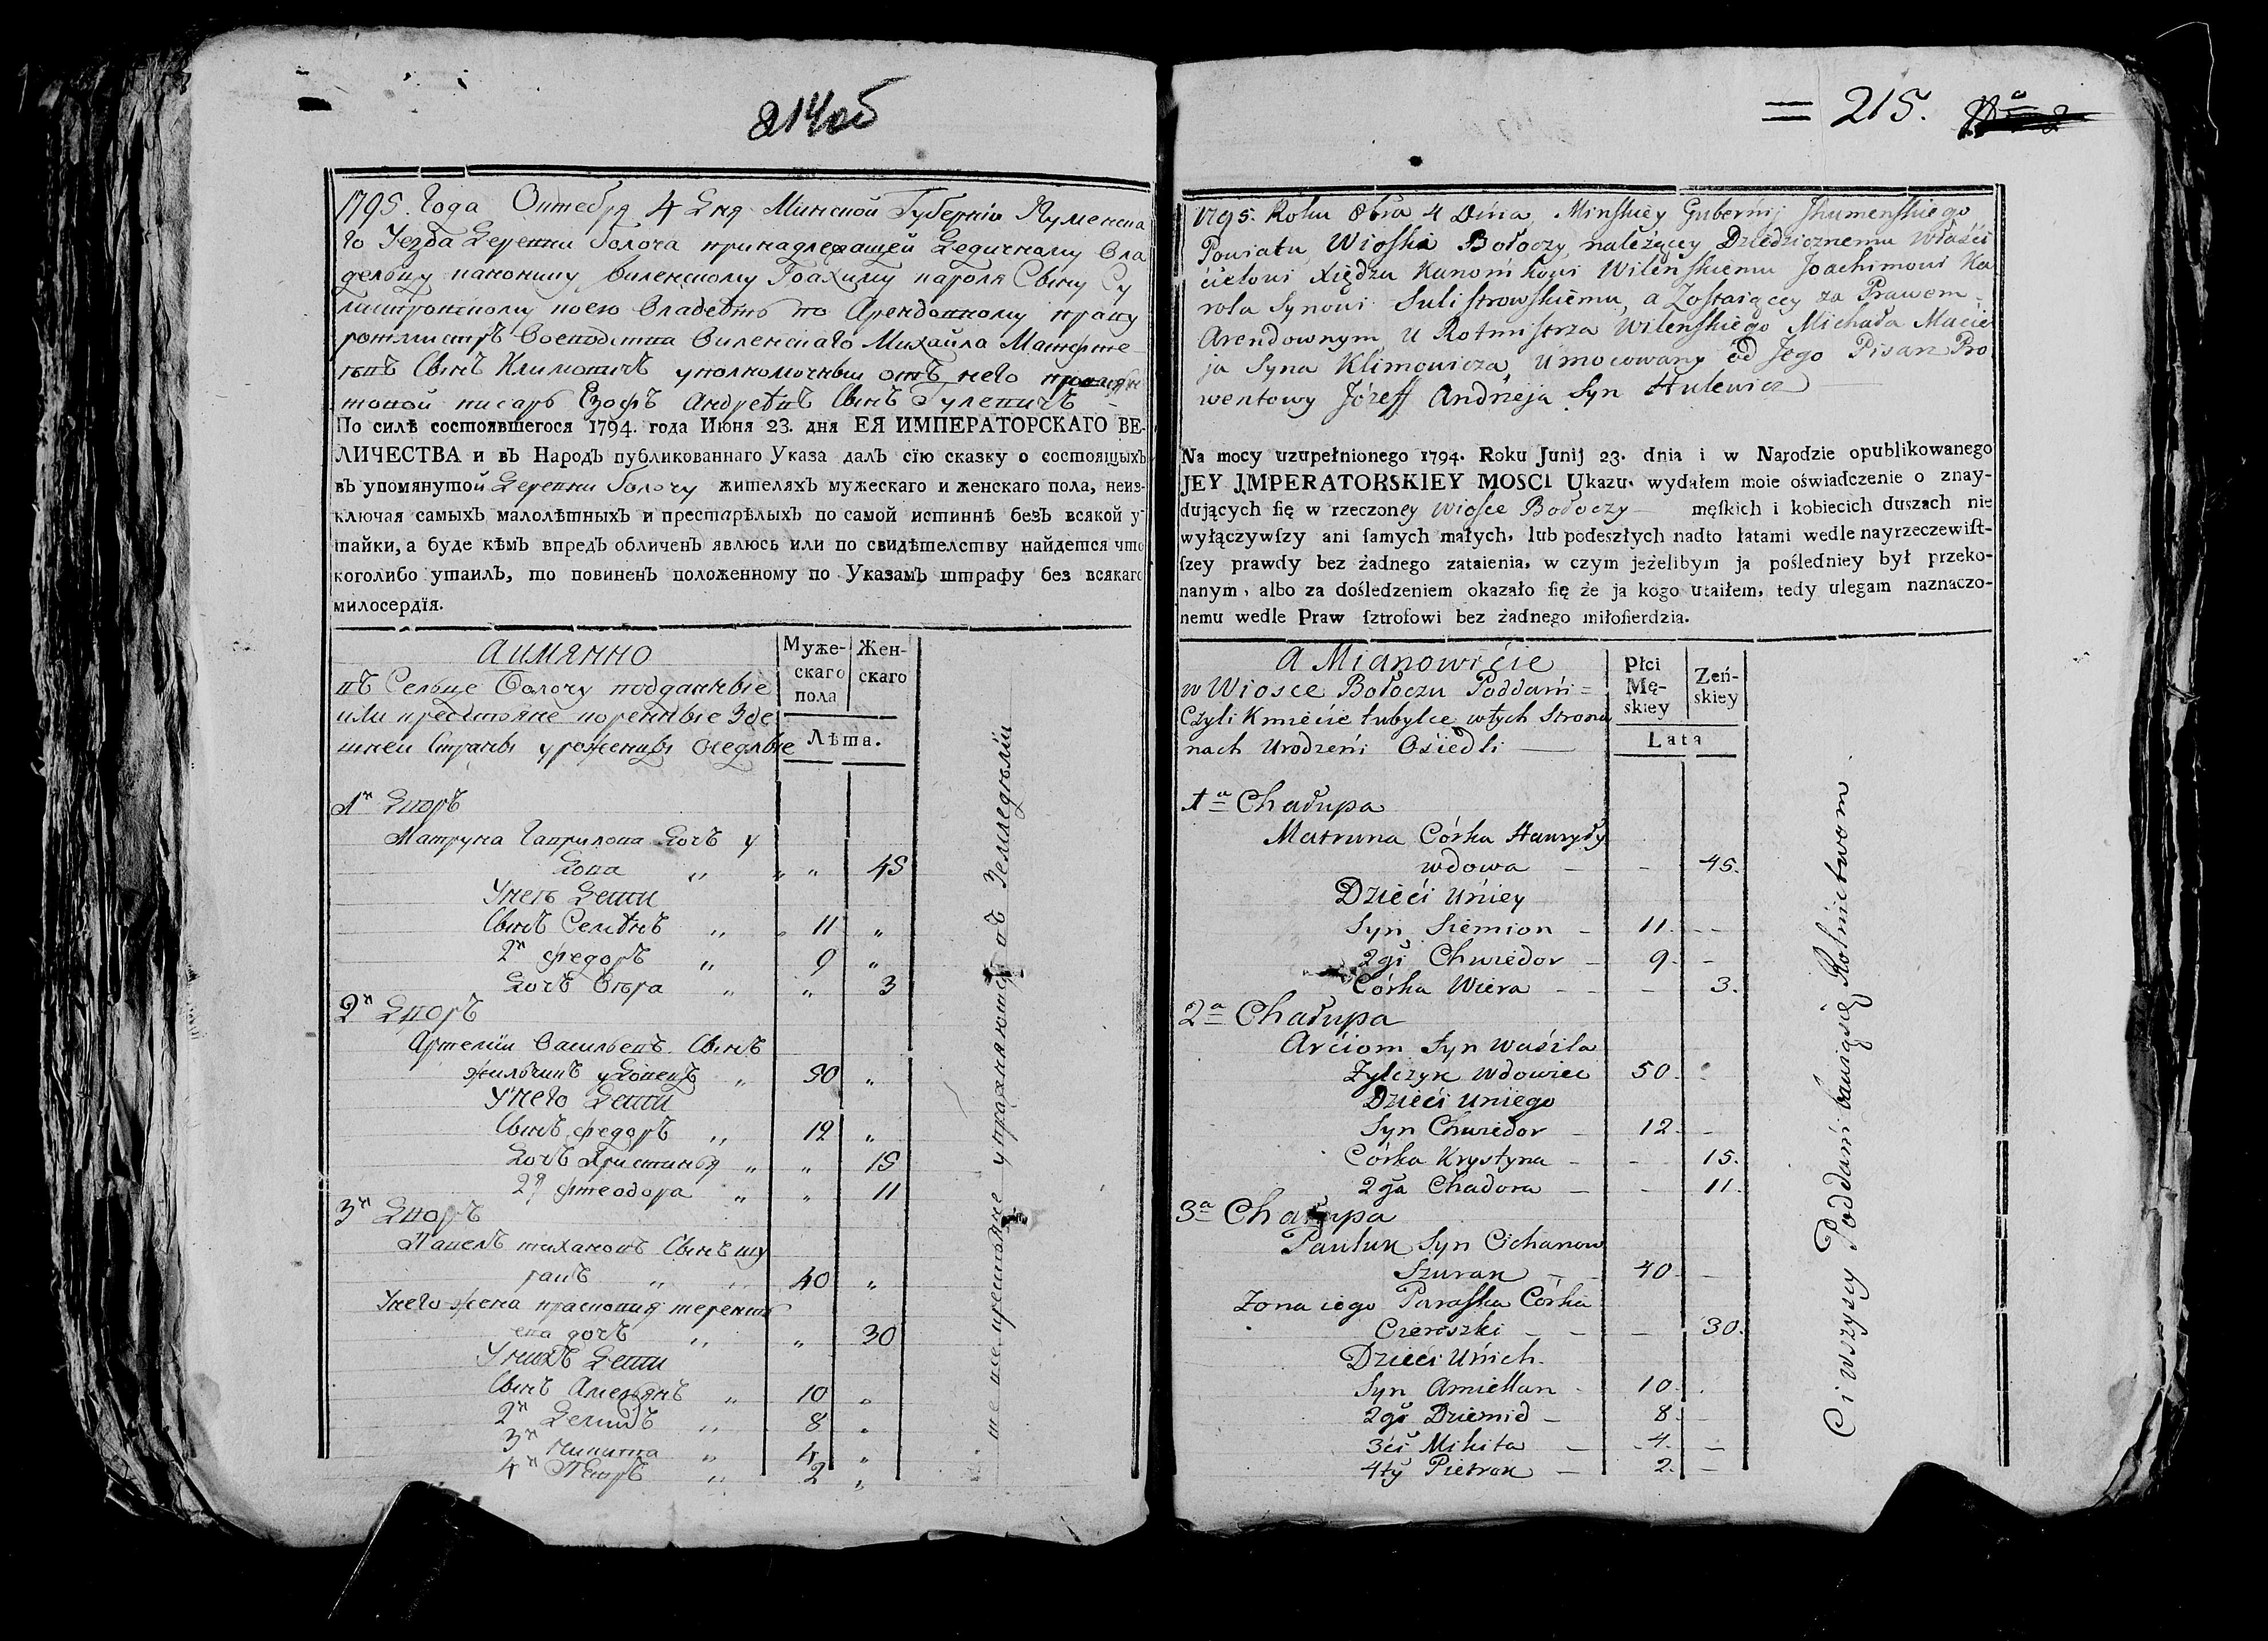 214об
1795. Года Октебря 4 Дня Минской Губерніи Игуменска
го Уезда Деревни Болоча принадлежащей Дедичному Вла
дельцу канонику Виленскому Іоахиму кароля Сыну Су
листровскому коею владеетъ по Арендовному праву
ротмистръ Воеводства виленскаго Михайла Матфее
въ Сынъ Климовичъ уполномочный отъ него провен
товой писарь Езофъ Андреевъ Сынъ Гулевичъ
По силѣ состоявшегося 1794. года Июня 23. дня ЕЯ ИМПЕРАТОРСКАГО ВЕ-
ЛИЧЕСТВА и въ Народъ публикованнаго Указа далъ сїю сказку о состоящыхъ
въ упомянутой Деревни Болочу жителяхъ мужескаго и женскаго пола, неиз-
ключая самыхъ малолѣтныхъ и престарѣлыхъ по самой истиннѣ безъ всякой у-
тайки, а буде кѣмъ впредъ обличенъ явлюсь или по свидѣтелству найдется что
коголибо утаилъ, то повиненъ положенному по Указамъ штрафу без всякаго
милосердїя.
Аимянно
Муже-
скаго
пола
Жен-
скаго
Лѣта.
въ Сельце Болочу подданные
или крестьяне коренные Зде
шнеи Страны уроженцы оседлые
1й Дворъ
Матруна Гаврилова Дочь у
Дова 45
У нее Дети
Сынъ Семенъ 11
2й Федоръ 9
Дочь Вера 3
2й Дворъ
Артемій Васильевъ Сынъ
жильчикъ удовецъ 50
У него Дети
Сынъ Федоръ 12
Дочь Христинья 15
2я Фтеодора 11
3й Дворъ
Павелъ тихановъ Сынъ шу
ракъ 40
У него жена прасковия терентье
ева дочь 30
У нихъ Дети
Сынъ Амельянъ 10
2й Демидъ 8
3й Микита 4
4й Петръ 2
теже крестьяне упражняютсе въ Земледелїи
= 215.
1795. Roku 8bra 4 Dnia Minskiey Guberńij Jhumenskiego
Powiatu Wioski Bołoczy należącey Dziedzicznemu właści
cielowi Xiędzu Kanonikowi Wilenskiemu Joachimowi Ka
rola Synowi Sulistrowskiemu, a Zostaiącey za Prawem
Arendownym u Rotmistrza Wilenskiego Michała Macie
ja Syna Klimowicza, Umocowany od Jego Pisarz Pro
wentowy Józeff Andrzeja Syn Hulewicz
Na mocy uzupełnionego 1794. Roku Junij 23. dnia i w Narodzie opublikowanego
JEY IMPERATORSKIEY MOSCI Ukazu, wydałem moie oświadczenie o znay-
dujących się w rzeczoney wiosce Bołoczy męskich i kobiecich duszach nie
wyłączywszy ani samych małych, lub podeszłych nadto łatami wedle nayrzeczewist-
szey prawdy bez żadnego zataienia, w czym jeżelibym ja pośledniey był przeko-
nanym, albo za dośledzeniem okazało się że ja kogo utaiłem, tedy ulegam naznaczo-
nemu wedle Praw sztrofowi bez żadnego miłosierdzia.
A Mianowićie
Płci
Mę-
skiey
Żeń-
skiey
Lata
w Wiosce Bołoczu Poddani =
Czyli Kmiećie tubylce wtych Strona
nach Urodzeńi Osiedli
1a Chałupa
Matruna Córka Hawryły
wdowa 45.
Dzieći Uńiey
Syn Siemion 11.
2gi Chwiedor 9.
Córka Wiera 3.
2a Chałupa
Arćiom Syn Waśila
Zylczyk Wdowiec 50.
Dzieći Uniego
Syn Chwiedor 12.
Córka Krystyna 15.
2ga Chadora 11.
3a Chałupa
Pauluk Syn Cichanow
Szurak 40.
Zona iego Paraska Córka
Cieroszki 30.
Dzieći Uńich
Syn Amiellan 10.
2gi Dziemid 8.
3ći Mikita 4.
4ty Pietrok 2.
Ci wszyscy Poddani bawiąsię Rolnictwom